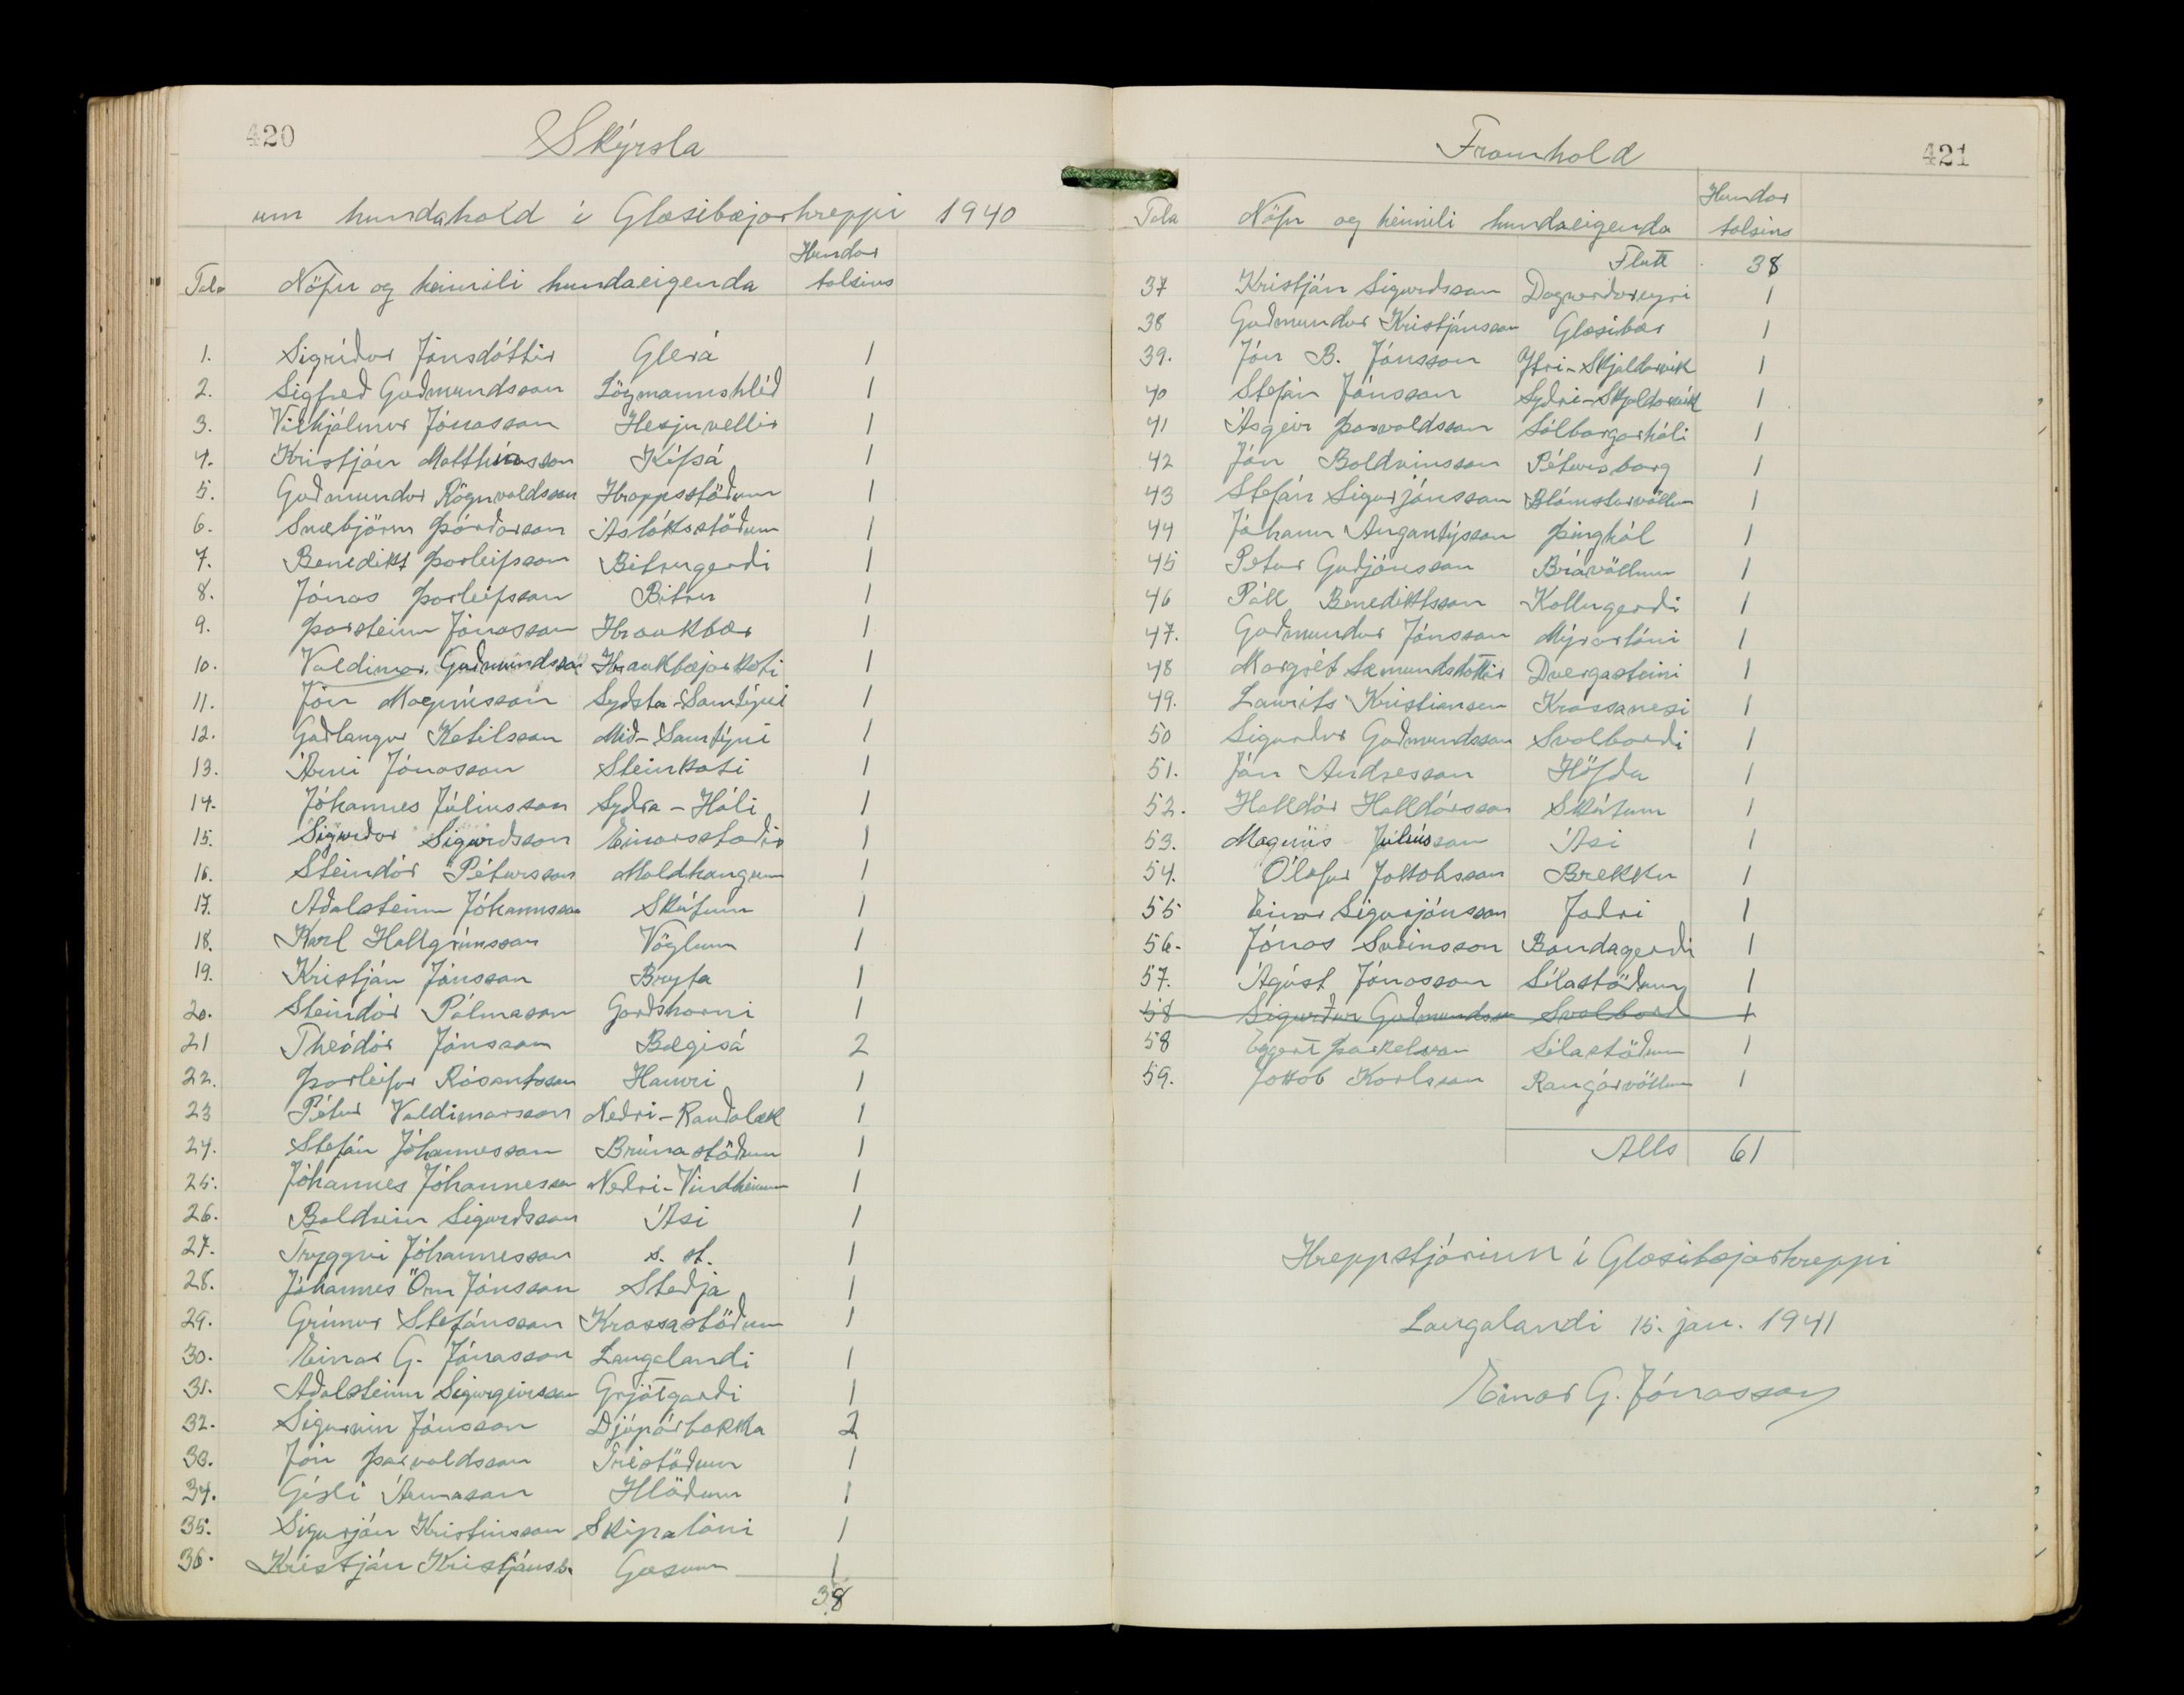 420
Skýrsla
um hundahald í Glæsibæjarhreppi 1940
Tala Nöfn og heimili hundaeigenda Hundar talsins
1. Sigríður Jónsdóttir Glerá 1
2. Sigfred Guðmundsson Lögmannshlíð 1
3. Vilhjálmur Jónasson Hesjuvellir 1
4. Kristján Matthíasson Kífsá 1
5. Guðmundur Rögnvaldsson Hrappsstöðum 1
6. Snæbjörn Þórðarson Ásláksstöðum 1
7. Benedikt Þorleifsson Bitrugerði 1
8. Jónas Þorleifsson Bitru 1
9. Þorsteinn Jónasson Hraukbæ 1
10. Valdimar Guðmundsson Hraukbæjarkoti 1
11. Jón Magnússon Syðsta-Samtýni 1
12. Guðlaugur Ketilsson Mið-Samtýni 1
13. Árni Jónasson Steinkoti 1
14. Jóhannes Júlíusson Syðra-Hóli 1
15. Sigurður Sigurðsson Einarsstaðir 1
16. Steindór Pétursson Moldhaugum 1
17. Aðalsteinn Jóhannsson Skútum 1
18. Karl Hallgrímsson Vöglum 1
19. Kristján Jónsson Bryta 1
20. Steindór Pálmason Garðshorni 1
21 Theódór Jónsson Bægisá 2
22. Þorleifur Rósantsson Hamri 1
23 Pétur Valdimarsson Neðri-Rauðalæk 1
24. Stefán Jóhannesson Brúnastöðum 1
25. Jóhannes Jóhannesson Neðri-Vindheimum 1
26. Baldvin Sigurðsson Ási 1
27. Tryggvi Jóhannesson s. st. 1
28. Jóhannes Örn Jónsson Steðja 1
29. Grímur Stefánsson Krossastöðum 1
30. Einar G. Jónasson Laugalandi 1
31. Aðalsteinn Sigurgeirsson Grjótgarði 1
32. Sigurvin Jónsson Djúpárbakka 2
33. Jón Þorvaldsson Tréstöðum 1
34. Gísli Árnason Hlöðum 1
35. Sigurjón Kristinsson Skipalóni 1
36. Kristján Kristjánss. Gásum 1
38
Framhald
421
Tala Nöfn og heimili hundaeigenda Hundar talsins
Flutt 38
37 Kristján Sigurðsson Dagverðareyri 1
38 Guðmundur Kristjánsson Glæsibær 1
39. Jón B. Jónsson Ytri-Skjaldarvík 1
40 Stefán Jónsson Syðri-Skjaldarvík 1
41 Ásgeir Þorvaldsson Sólborgarhóli 1
42 Jón Baldvinsson Pétursborg 1
43 Stefán Sigurjónsson Blómsturvöllum 1
44 Jóhann Angantýsson Þinghól 1
45 Pétur Guðjónsson Brávöllum 1
46 Páll Benediktsson Kollugerði 1
47. Guðmundur Jónsson Mýrarlóni 1
48 Margrét Sæmundsdóttir Dvergasteini 1
49. Laurits Kristiansen Krossanesi 1
50 Sigurður Guðmundsson Svalbarði 1
51. Jón Andrésson Höfða 1
52. Halldór Halldórsson Skútum 1
53. Magnús Júlíusson Ási 1
54. Ólafur Jakobsson Brekku 1
55 Einar Sigurjónsson Jaðri 1
56. Jónas Sveinsson Bandagerði 1
57. Ágúst Jónasson Sílastöðum 1
58 Sigurður Guðmundss Svalbarð 1
58 Eggert Þorkelsson Sílastöðum 1
59. Jakob Karlsson Rangárvöllum 1
Alls 61
Hreppstjórinn í Glæsibæjarhreppi
Laugalandi 15. jan. 1941
Einar G. Jónasson